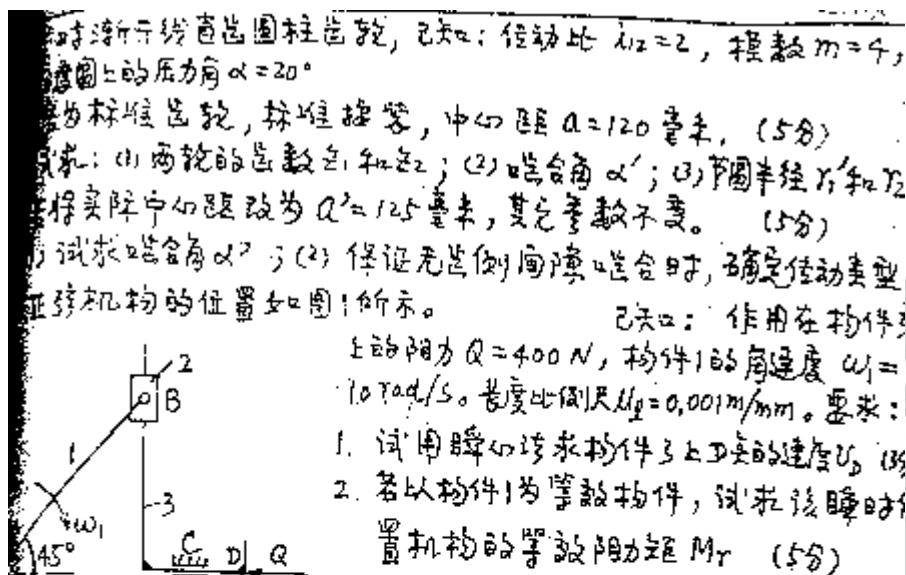 渐开线直齿圆柱齿轮, 已知: 传动比 i₁₂=2, 模数 m=4,
圆上的压力角 α=20°
为标准齿轮, 标准安装, 中心距 a=120 毫米, (5分)
求: (1) 两轮的齿数 Z₁ 和 Z₂; (2) 啮合角 α'; (3) 节圆半径 r₁' 和 r₂
将实际中心距改为 a'=125 毫米, 其它参数不变。 (5分)
) 试求啮合角 α' ; (2) 保证无齿侧间隙啮合时, 确定传动类型
弦机构的位置如图1所示。 已知: 作用在构件3
上的阻力 Q=400 N, 构件1的角速度 ω₁=
10 rad/s。长度比例尺 μl=0.001m/mm。要求:
1. 试用瞬心法求构件3上D点的速度 υD (3分
2. 若以构件1为等效构件, 试求该瞬时位
置机构的等效阻力矩 Mr (5分)
2
B
1
3
ω₁
45°
C
D
Q